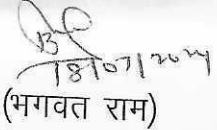 18/07/2024
(भगवत राम)